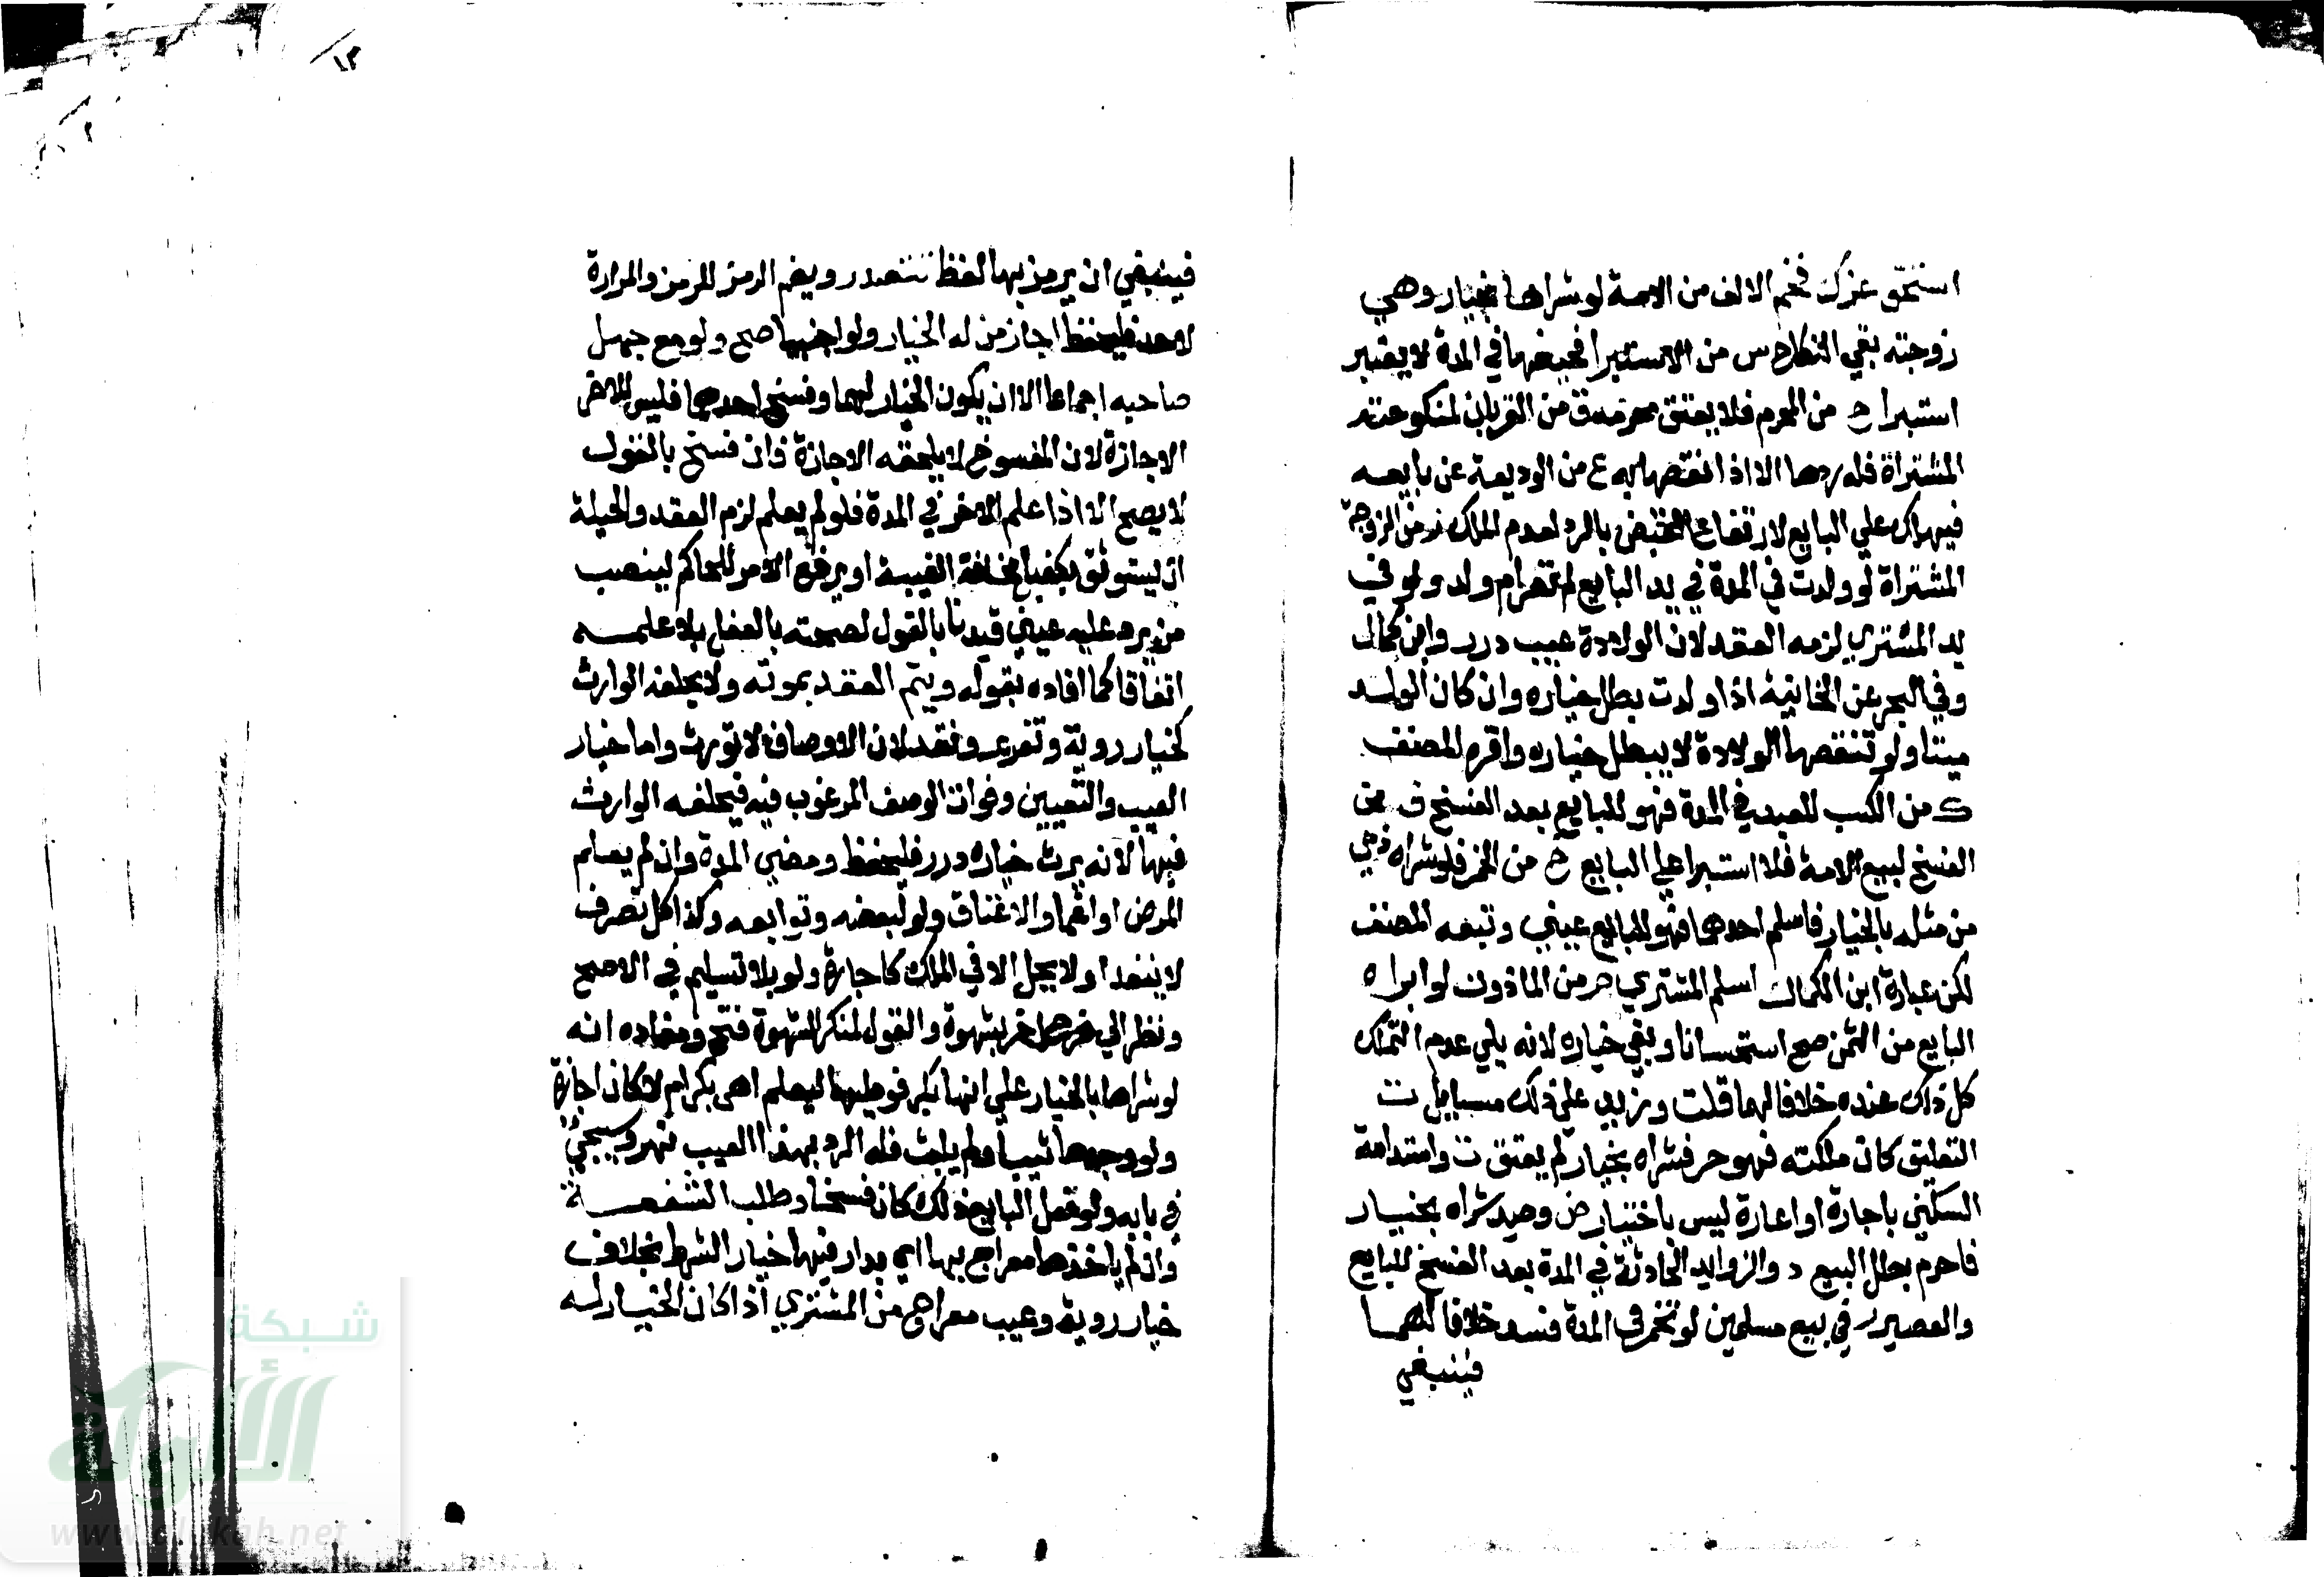 استحق عزك فخم الالف من الامة لو شراها بخيار وهي
زوجته بقي النكاح س من الاستبرا فحيضها في المدة لا يعتبر
استبرا ح من المحرم فلا يعتق محرمه ق من القربان لمنكوحته
المشتراة فله ردها الا اذا نقصها به ع من الوديعة عن بايعه
فيهلك علي البايع لارتفاع القبض بالرد لعدم الملك ز من الزوجة
المشتراة لو ولدت في المدة في يد البايع لم تصر ام ولد ولو في
يد المشتري لزمه العقد لان الولادة عيب درر وابن كمال
وفي البحر عن الخانية اذا ولدت بطل خياره وان كان الولد
ميتا ولو تنقصها الولادة لا يبطل خياره واقره المصنف
ك من الكسب للعبد في المدة فهو للبايع بعد الفسخ ف من
الفسخ لبيع الامة فلا استبرا علي البايع خ من الخمر فلو شراه ذمي
من مثله بالخيار فاسلم احدهما فهو للبايع عيني وتبعه المصنف
لكن عبارة ابن الكمال اسلم المشتري م من الماذون لو ابراه
البايع من الثمن صح استحسانا وبقي خياره لانه يلي عدم التملك
كل ذلك عنده خلافا لهما قلت وزيد علي ذلك مسايل ت
التعليق كان ملكته فهو حر فشراه بخيار لم يعتق ت واستدامة
السكني باجارة او اعارة ليس باختيار ص وصيد شراه بخيار
فاحرم بطل البيع د والزوايد الحادثة في المدة بعد الفسخ للبايع
والعصير ر في بيع مسلمين لو تخمر في المدة فسد خلافا لهما
فينبغي
فينبغي ان يرمز بها لفظ تتصدر ويضم الرمز للرمز والمرادة
لاحد فليحفظ اجاز من له الخيار ولو اجنبيا صح ولو مع جهل
صاحبه اجماعا الا ان يكون الخيار لهما وفسخ احدهما فليس للاخر
الاجازة لان المفسوخ لا يلحقه الاجازة فان فسخ بالقول
لا يصح الا اذا علم الاخر في المدة فلو لم يعلم لزم العقد والحيلة
ان يستوثق بكفيل مخافة الغيبة او يرفع الامر للحاكم لينصب
من يرد عليه عيني قيدنا بالقول لصحته بالفعل بلا علمه
اتفاقا كما افاده بقوله ويتم العقد بموته ولا يخلفه الوارث
كخيار روية وتغرير ونقد لان الاوصاف لا تورث واما خيار
العيب والتعيين وفوات الوصف المرغوب فيه فيخلفه الوارث
فيها لانه يرث خياره درر فليحفظ ومضي المدة وان لم يعلم
لمرض او اغما والاعتاق ولو لبعضه وتوابعه وكذا كل تصرف
لا ينفد او لا يحل الا في الملك كاجارة ولو بلا تسليم في الاصح
ونظر الي فرج داخل بشهوة والقول لمنكر الشهوة فتح ومفاده انه
لو شراها بالخيار علي انها بكر فوطيها ليعلم اهي بكر ام لا كان اجازة
ولو وجدها ثيبا ولم يلبث فله الرد بهذا العيب نهر وسيجيء
في بابه ولو فعل البايع ذلك كان فسخا وطلب الشفعة
وان لم ياخذها معراج بها اي بدار فيها خيار الشرط بخلاف
خيار روية وعيب معراج من المشتري اذا كان الخيار له
شبكة
الألوكة
www.alukah.net